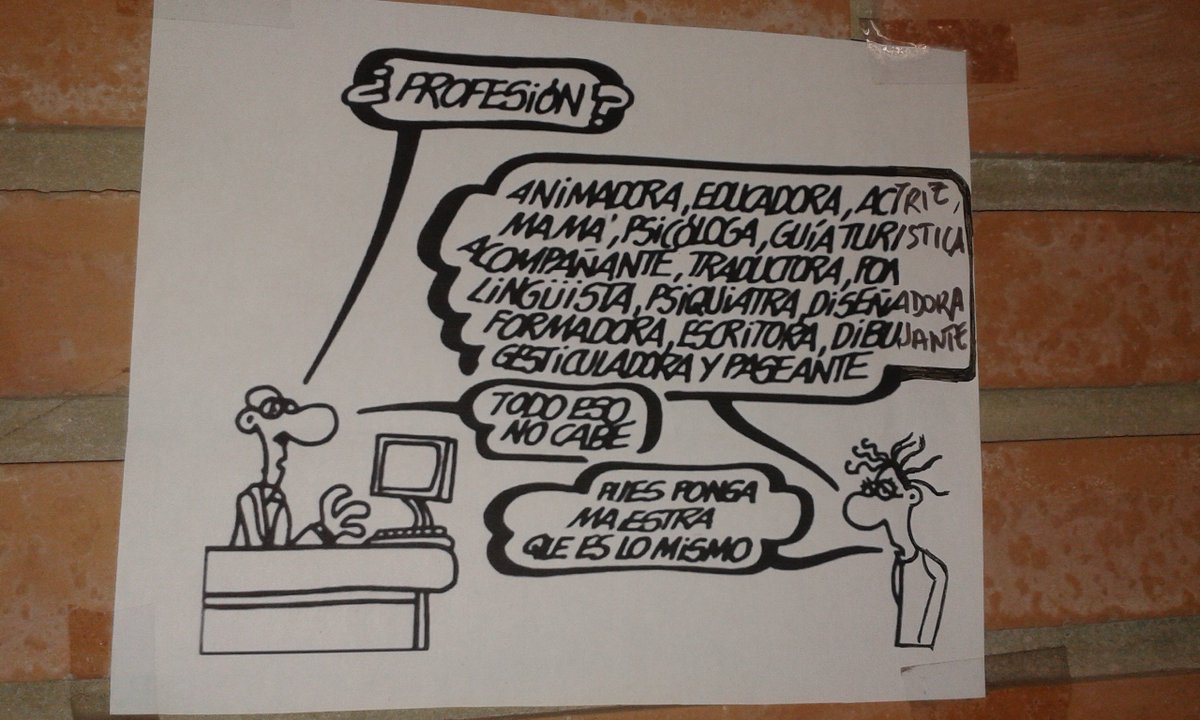 ¿PROFESIÓN?
ANIMADORA, EDUCADORA, ACTRIZ,
MAMÁ, PSICÓLOGA, GUÍA TURISTICA
ACOMPAÑANTE, TRADUCTORA,
LINGÜISTA, PSIQUIATRA, DISEÑADORA
FORMADORA, ESCRITORA, DIBUJANTE
GESTICULADORA Y PASEANTE
TODO ESO
NO CABE
PUES PONGA
MAESTRA
QUE ES LO MISMO